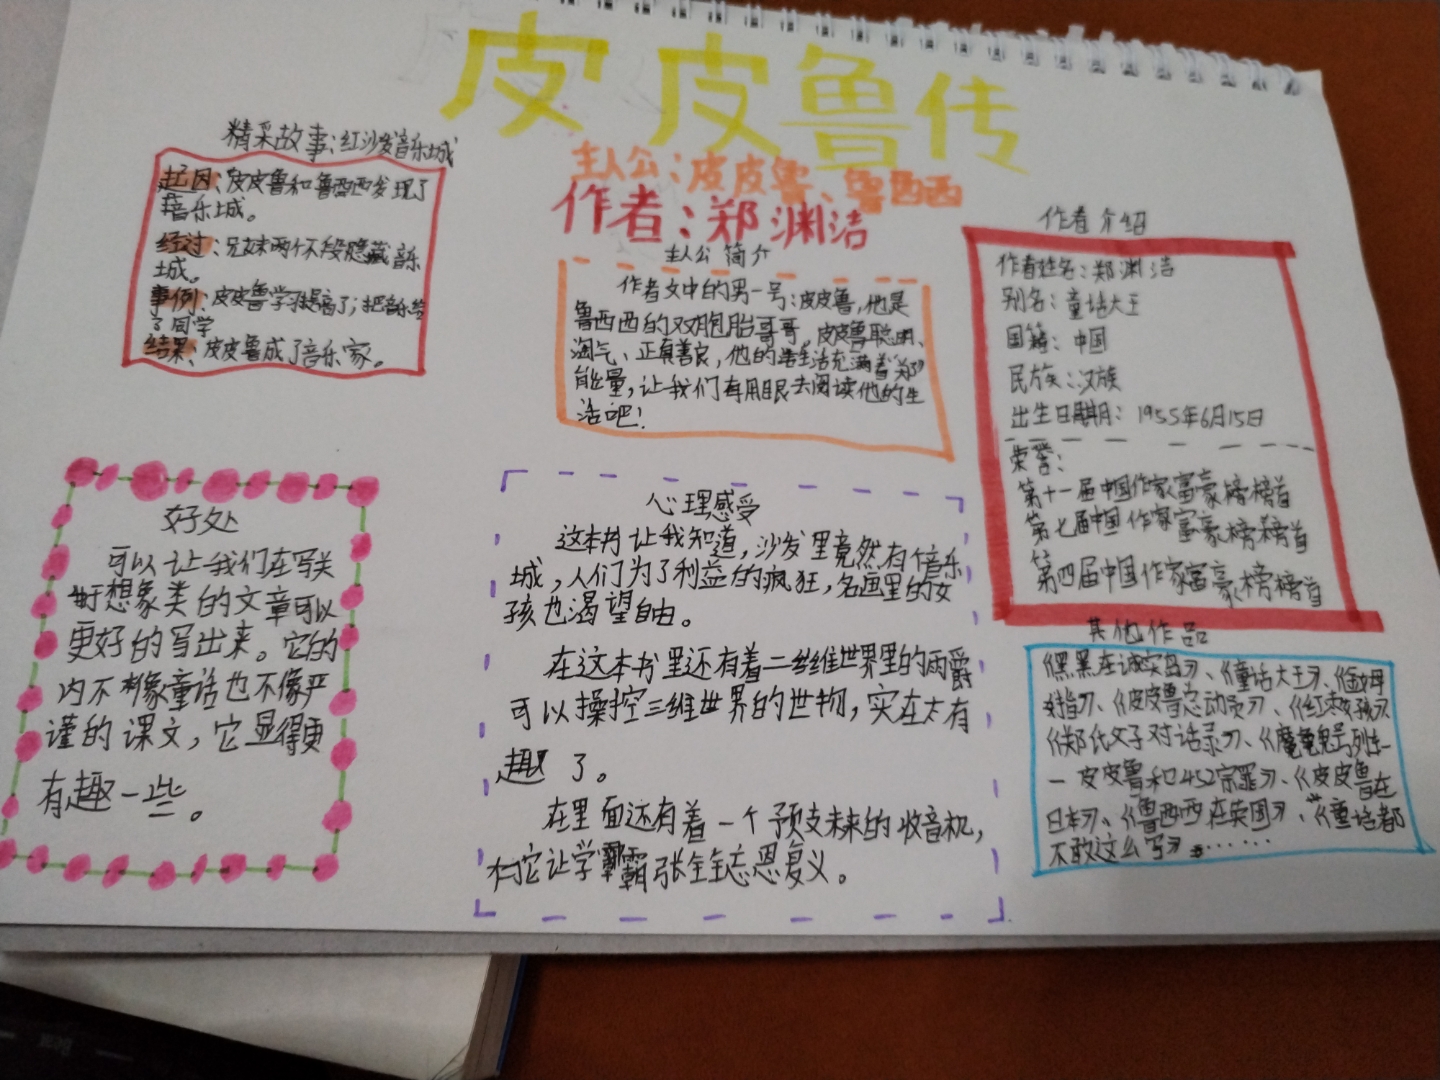 皮皮鲁传
主人公：皮皮鲁、鲁西西
作者：郑渊洁
精采故事：红沙发音乐城
起因：皮皮鲁和鲁西西发现了
音乐城。
经过：兄妹两个不段隐藏音乐
城。
事例：皮皮鲁学习提高了；把音乐给
了同学
结果：皮皮鲁成了音乐家。
主人公简介
作者文中的男一号：皮皮鲁，他是
鲁西西的双胞胎哥哥。皮皮鲁聪明、
淘气、正真善良，他的生活充满着"郑"
能量，让我们有用眼去阅读他的生
活吧！
作者介绍
作者姓名：郑渊洁
别名：童话大王
国籍：中国
民族：汉族
出生日期：1955年6月15日
荣誉：
第十一届中国作家富豪榜榜首
第七届中国作家富豪榜榜首
第四届中国作家富豪榜榜首
好处
可以让我们在写关
于想象类的文章可以
更好的写出来。它的
内不像童话也不像严
谨的课文，它显得更
有趣一些。
心理感受
这本书让我知道，沙发里竟然有个音乐
城，人们为了利益的疯狂，名画里的女
孩也渴望自由。
在这本书里还有着二维世界里的两爵
可以操控三维世界的世物，实在太有
趣了。
在里面还有着一个预支未来的收音机，
它让学霸张全全忘恩复义。
其他作品
《黑黑在诚实岛》、《童话大王》、《
》、《皮皮鲁总动员》、《红枣女孩》
《郑氏父子对话录》、《魔鬼号列车
皮皮鲁和452宗罪》、《皮皮鲁在
日本》、《鲁西西在英国》、《童话都
不敢这么写》……